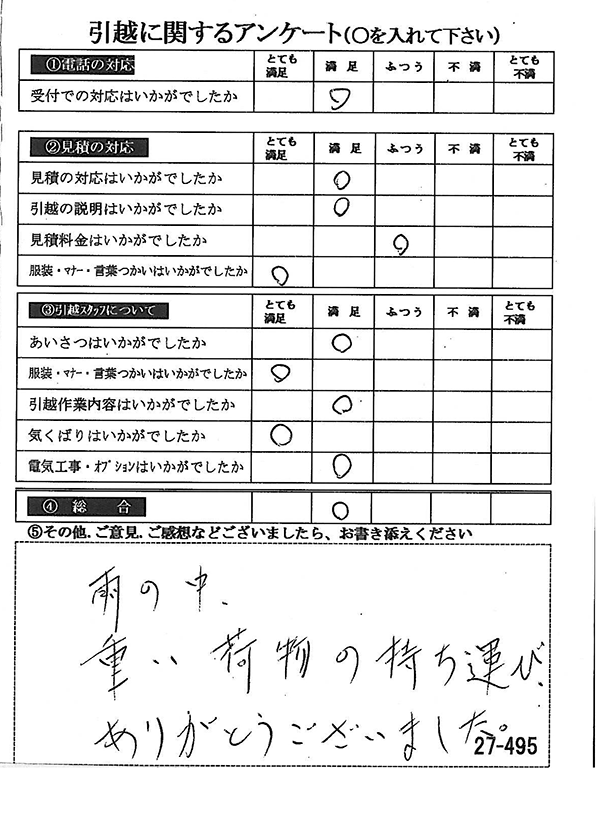 引越に関するアンケート(○を入れて下さい)
①電話の対応 とても満足 満足 ふつう 不満 とても不満
受付での対応はいかがでしたか ○
②見積の対応 とても満足 満足 ふつう 不満 とても不満
見積の対応はいかがでしたか ○
引越の説明はいかがでしたか ○
見積料金はいかがでしたか ○
服装・マナー・言葉つかいはいかがでしたか ○
③引越スタッフについて とても満足 満足 ふつう 不満 とても不満
あいさつはいかがでしたか ○
服装・マナー・言葉つかいはいかがでしたか ○
引越作業内容はいかがでしたか ○
気くばりはいかがでしたか ○
電気工事・オプションはいかがでしたか ○
④ 総合 ○
⑤その他.ご意見.ご感想などございましたら、お書き添えください
雨の中、
重い荷物の持ち運び、
ありがとうございました。
27-495